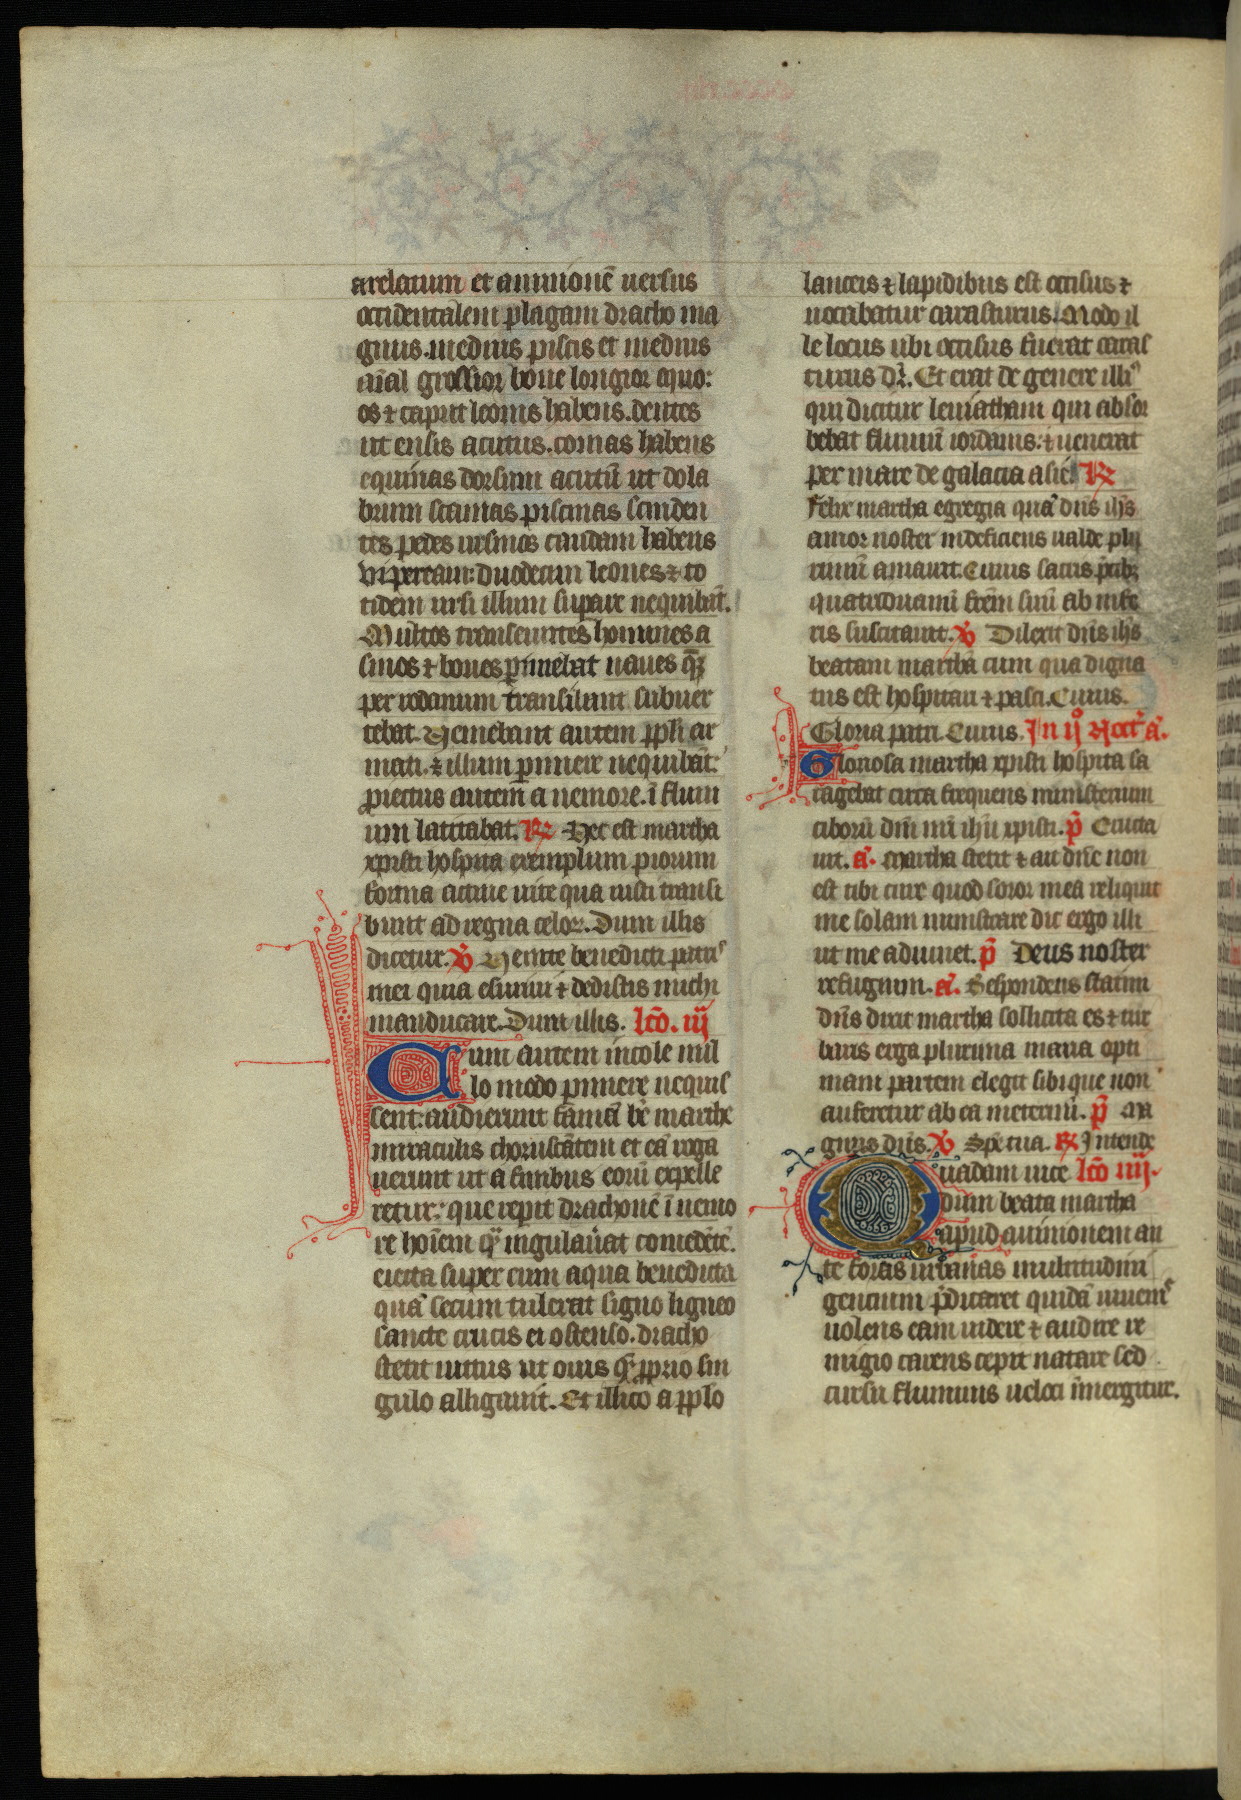 arelatum et aninionē uersus
occidentalem plagam dracho ma
gnus. medius piscis et medius
aīal grossior boue longior equo:
os ⁊ caput leonis habens. dentes
ut ensis acutus. comas habens
equinas dorsum acutū ut dola
brum scamas piscinas scinden
tes pedes ursinos caudam habens
vipeream: duodecim leones ⁊ to
tidem ursi illum supare nequibāt.
Multos transeuntes homines a
sinos ⁊ boues pimebat naues qꝫ
per rodanum transilunt subuer
tebat. Ueniebant autem ppli ar
mati. ⁊ illum pimere nequibāt:
piectus autem a nemore. ī flum
um latitabat. R Hec est martha
xpisti hospita exemplum piorum
forma actiue uite qua iusti transi
bunt ad regna celoꝝ. Dum illis
dicetur. V Uenite benedicti patris
mei quia esuriui ⁊ dedistis michi
manducare. Dum illis. lcō. iij
Cum autem incole nul
lo modo pimere nequis
sent: audierunt famā bē marthe
miraculis choruscātem et eā roga
uerunt ut a finibus eorū expelle
retur: que repit drachonē ī nemo
re hoīem q̄ iugulauāt comedētē.
eiecta super eum aqua benedicta
quā secum tulerat signo ligneo
sancte crucis ei ostenso. dracho
stetit uictus ut ouis q̄ pprio sin
gulo alligauit. Et illico a pplo
lanceis ⁊ lapidibus est occisus ⁊
uocabatur tirasturus. Modo il
le locus ubi occisus fuerat taras
turus dꝛ. Et erat de genere illi'
qui dicitur leuiatham qui absor
bebat fluuiū iordanis: ⁊ uenerat
per mare de galacia asie. R
Felix martha egregia quā dn̄s ih̄s
amor noster indeficiens ualde plu
rimū amauit. Cuius sacris p̄cibꝫ
quatriduanū frēm suū ab infe
ris suscitauit. V Dilexit dn̄s ih̄s
beatam marthā cum qua digna
tus est hospitari ⁊ pasci. Cuius.
Gloria patri. Cuius. In ij Noct' a'.
Gloriosa martha xpisti hospita sa
tagebat circa frequens ministerium
ciborū dn̄i nr̄i ih̄u xpisti. p̄ Eructa
uit. a. Martha stetit ⁊ ait dn̄e non
est tibi cure quod soror mea reliquit
me solam ministrare dic ergo illi
ut me adiuuet. p̄ Deus noster
refugium. a. Respondens statim
dn̄s dixit martha sollicita es ⁊ tur
baris erga plurima maria opti
mam partem elegit sibi que non
auferetur ab ea in eternū. p̄ Ma
gnus dn̄s. V Spē tua. R Intende
Quadam uice lcō iiij.
dum beata martha
apud auinionem an
te foras urbanas multitudini
gentium p̄dicaret quidā iuuenis
uolens eam uidere ⁊ audire re
migio carens cepit natare sed
cursu fluminis ueloci īmergitur.